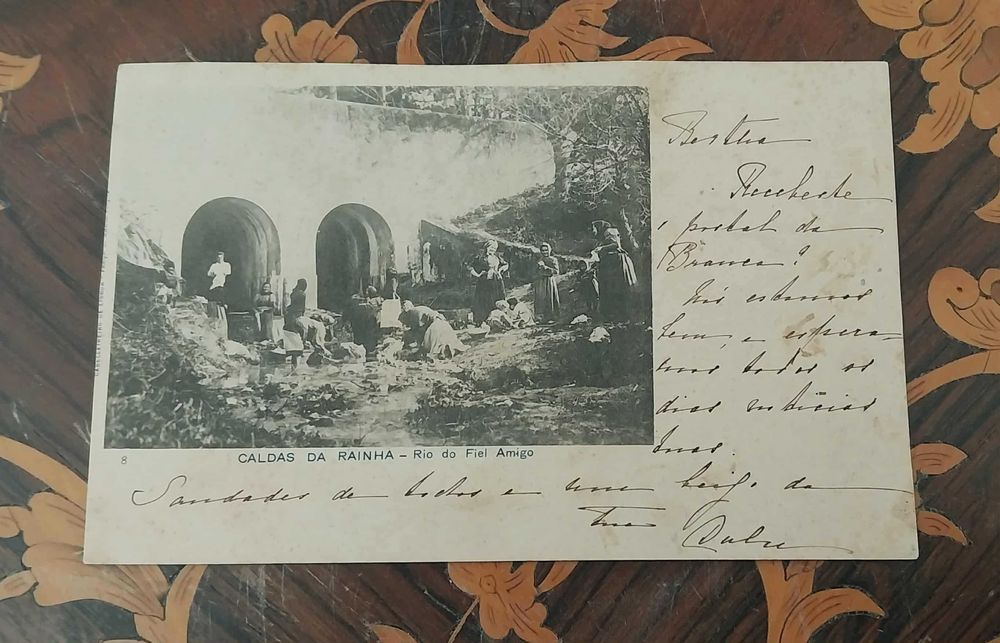 Bertha
Recebeste
o postal da
Branca?
Nós estamos
bem, e espera-
mos todos os
dias noticias
tuas.
8
CALDAS DA RAINHA – Rio do Fiel Amigo
Saudades de todos e um beijo da
Tua Dulce